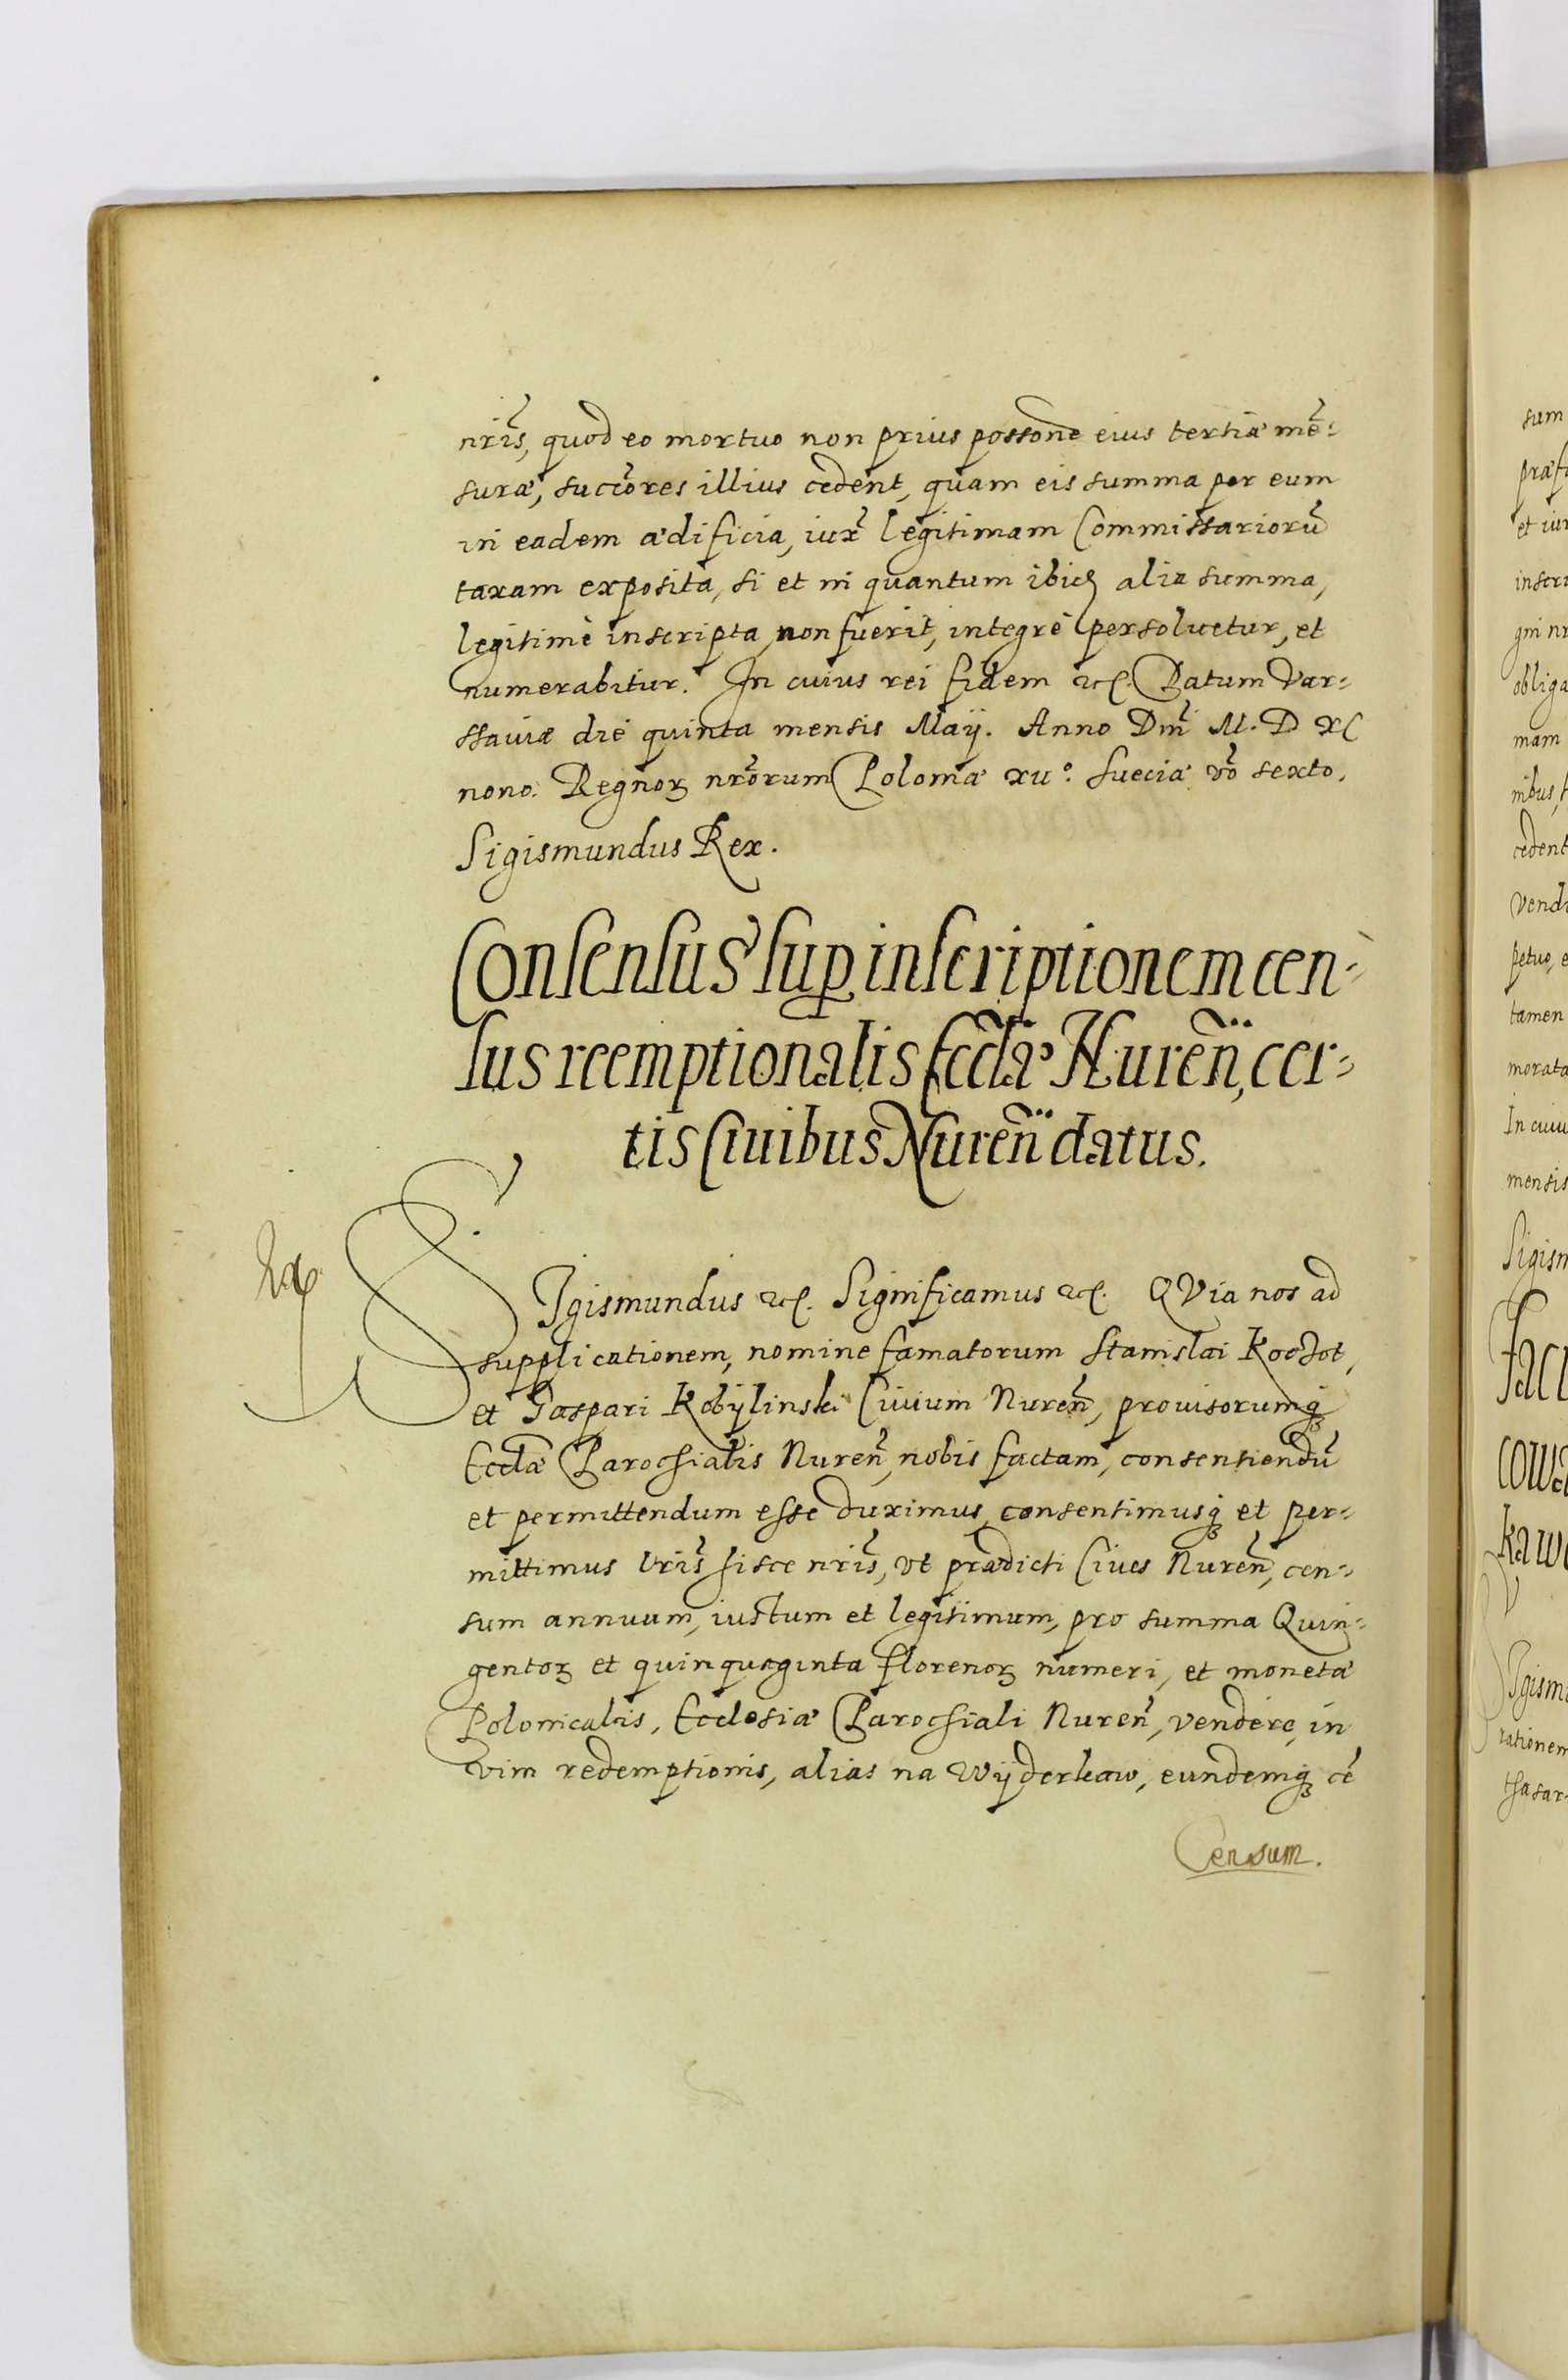 nrīs, quod eo mortuo non prius possōne eius tertiæ mē-
suræ, succōres illius cedent, quam eis summa per eum
in eadem ædificia, iux̄ legitimam Commissariorū
taxam exposita, si et in quantum ibid alia summa,
legitimè inscripta, non fuerit, integrè persoluetur, et
numerabitur. In cuius rei fidem etc. Datum Var-
ssauiæ die quinta mensis Maij. Anno Dnī M. D XC
nono. Regnoꝝ nrōrum Poloniæ xii°. Sueciæ vō sexto.
Sigismundus Rex.
Consensus sup inscriptionem cen-
sus reemptionalis Eccłæ Nureñ, cer-
tis Ciuibus Nureñ datus.
SIgismundus etc. Significamus etc. QVia nos ad
supplicationem, nomine famatorum Stanislai Koczot,
et Gaspari Kobÿlinski Ciuium Nureñ, prouisorumqꝫ
Eccłæ Parochialis Nureñ, nobis factam, consentiendū
et permittendum esse duximus, consentimusqꝫ et per-
mittimus lrīs hisce nrīs, vt prædicti Ciues Nureñ, cen-
sum annuum, iustum et legitimum, pro summa Quin-
gentoꝝ et quinquaginta florenoꝝ numeri, et monetæ
Polonicalis, Ecclesiæ Parochiali Nureñ, vendere, in
vim redemptionis, alias na Wÿderkaw, eundemqꝫ cē
Censum.
sum
præf
et iur
inscri
gni nr
obliga
mam
nibus,
cedent
vend
petuo, e
tamen
morata
In cuiu
mensis
Sigism
Facu
cowa
kaw
Sgism
rationem
thasar